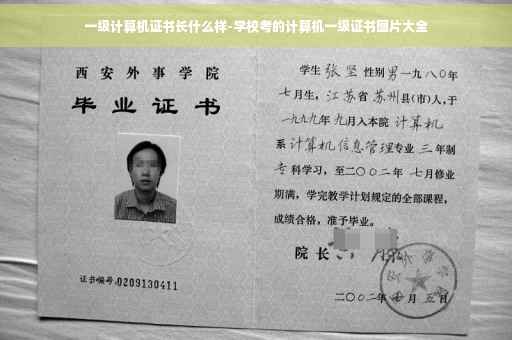 一级计算机证书长什么样-学校考的计算机一级证书图片大全
西安外事学院
毕业证书
证书编号:0209130411
学生 张坚 性别男一九八〇年
七月生，江苏省苏州县(市)人,于
一九九九年九月入本院 计算机
系计算机信息管理专业 三年制
专科学习，至二〇〇二年 七月修业
期满，学完教学计划规定的全部课程，
成绩合格，准予毕业。
院长
二〇〇二年 月五日